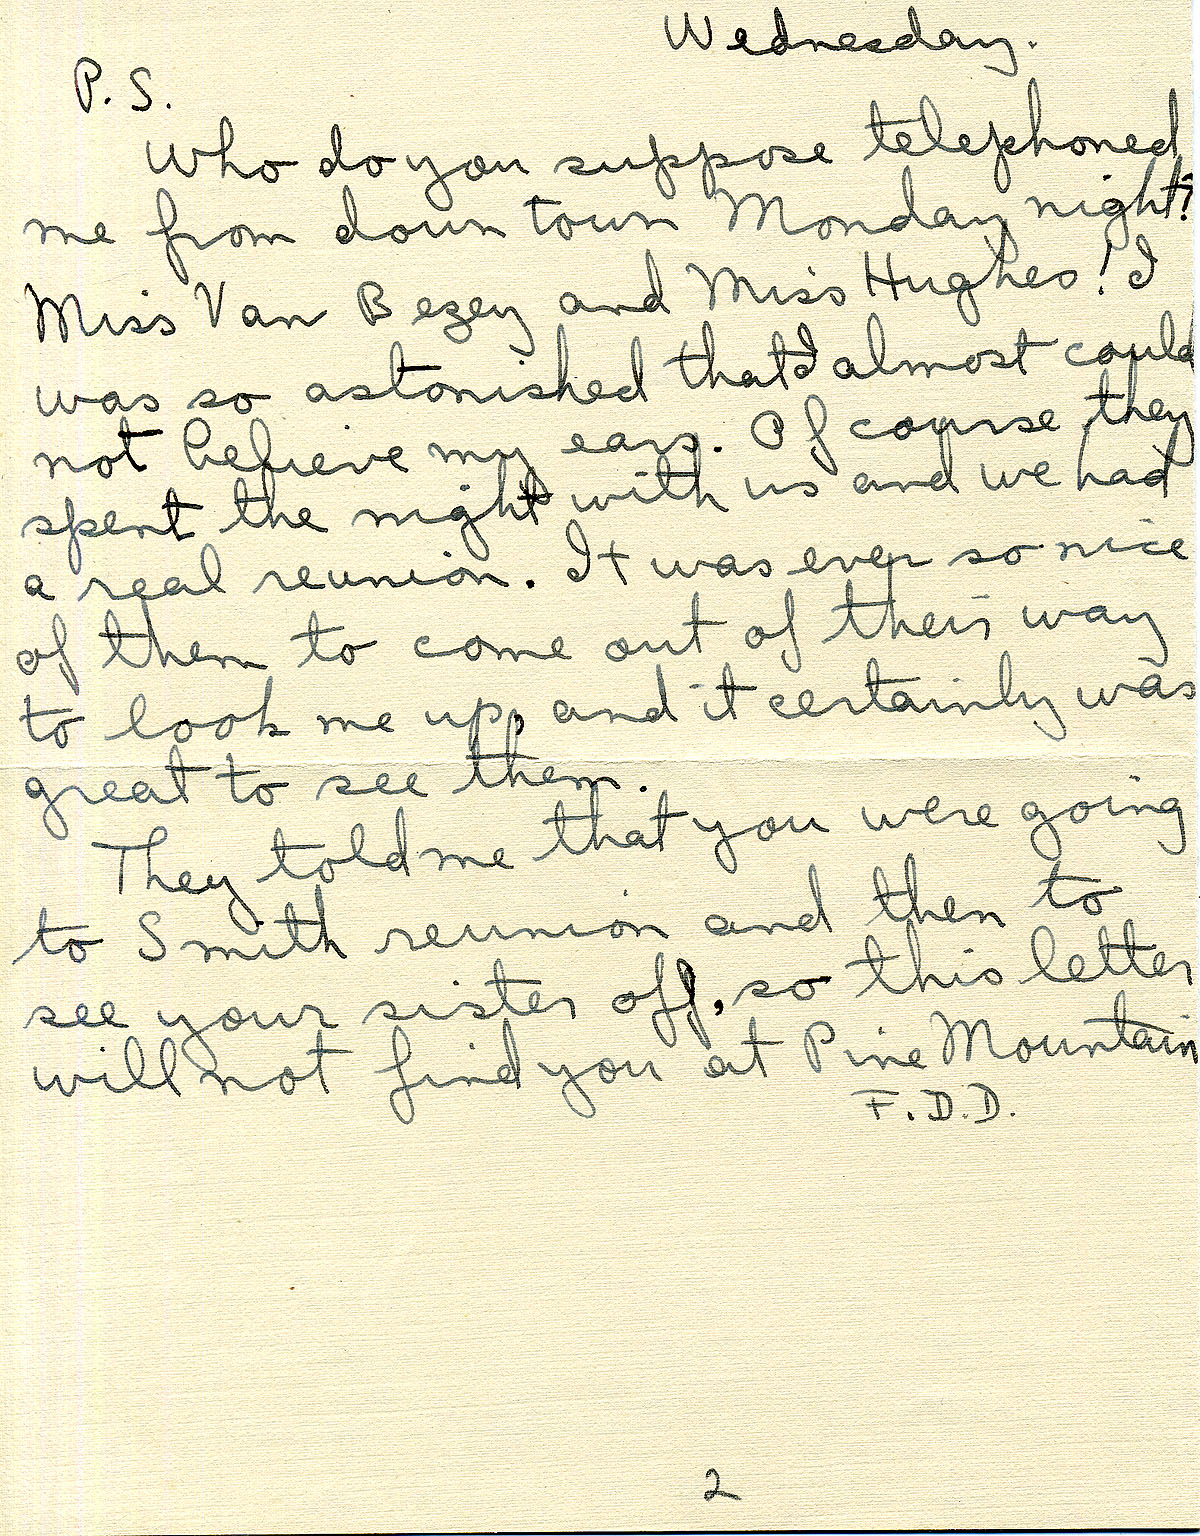 Wednesday.
P. S.
Who do you suppose telephoned
me from down town Monday night?
Miss Van Bezey and Miss Hughes! I
was so astonished that I almost could
not believe my ears. Of course they
spent the night with us and we had
a real reunion. It was ever so nice
of them to come out of their way
to look me up, and it certainly was
great to see them.
They told me that you were going
to Smith reunion and then to
see your sister off, so this letter
will not find you at Pine Mountain
F. D. D.
2